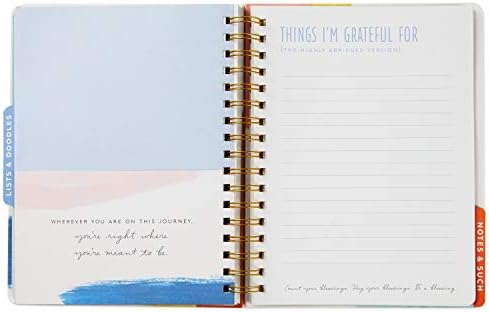 LISTS & DOODLES
WHEREVER YOU ARE ON THIS JOURNEY,
you're right where
you're meant to be.
THINGS I'M GRATEFUL FOR
(THE HIGHLY ABRIDGED VERSION)
Count your blessings. Pay your blessings. Be a blessing.
NOTES & SUCH